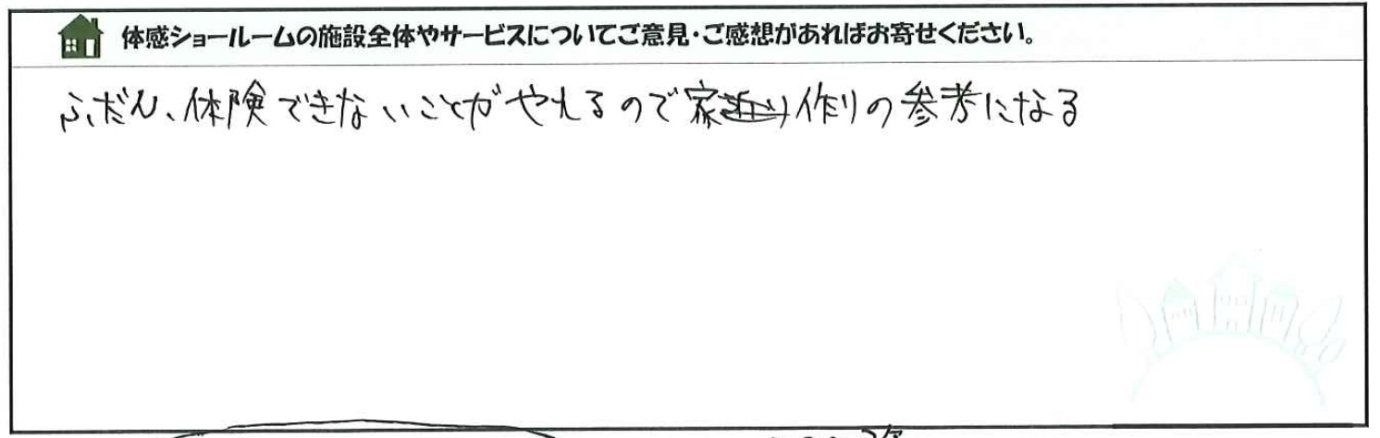 体感ショールームの施設全体やサービスについてご意見・ご感想があればお寄せください。
ふだん、体険できないことがやれるので家作りの参考になる